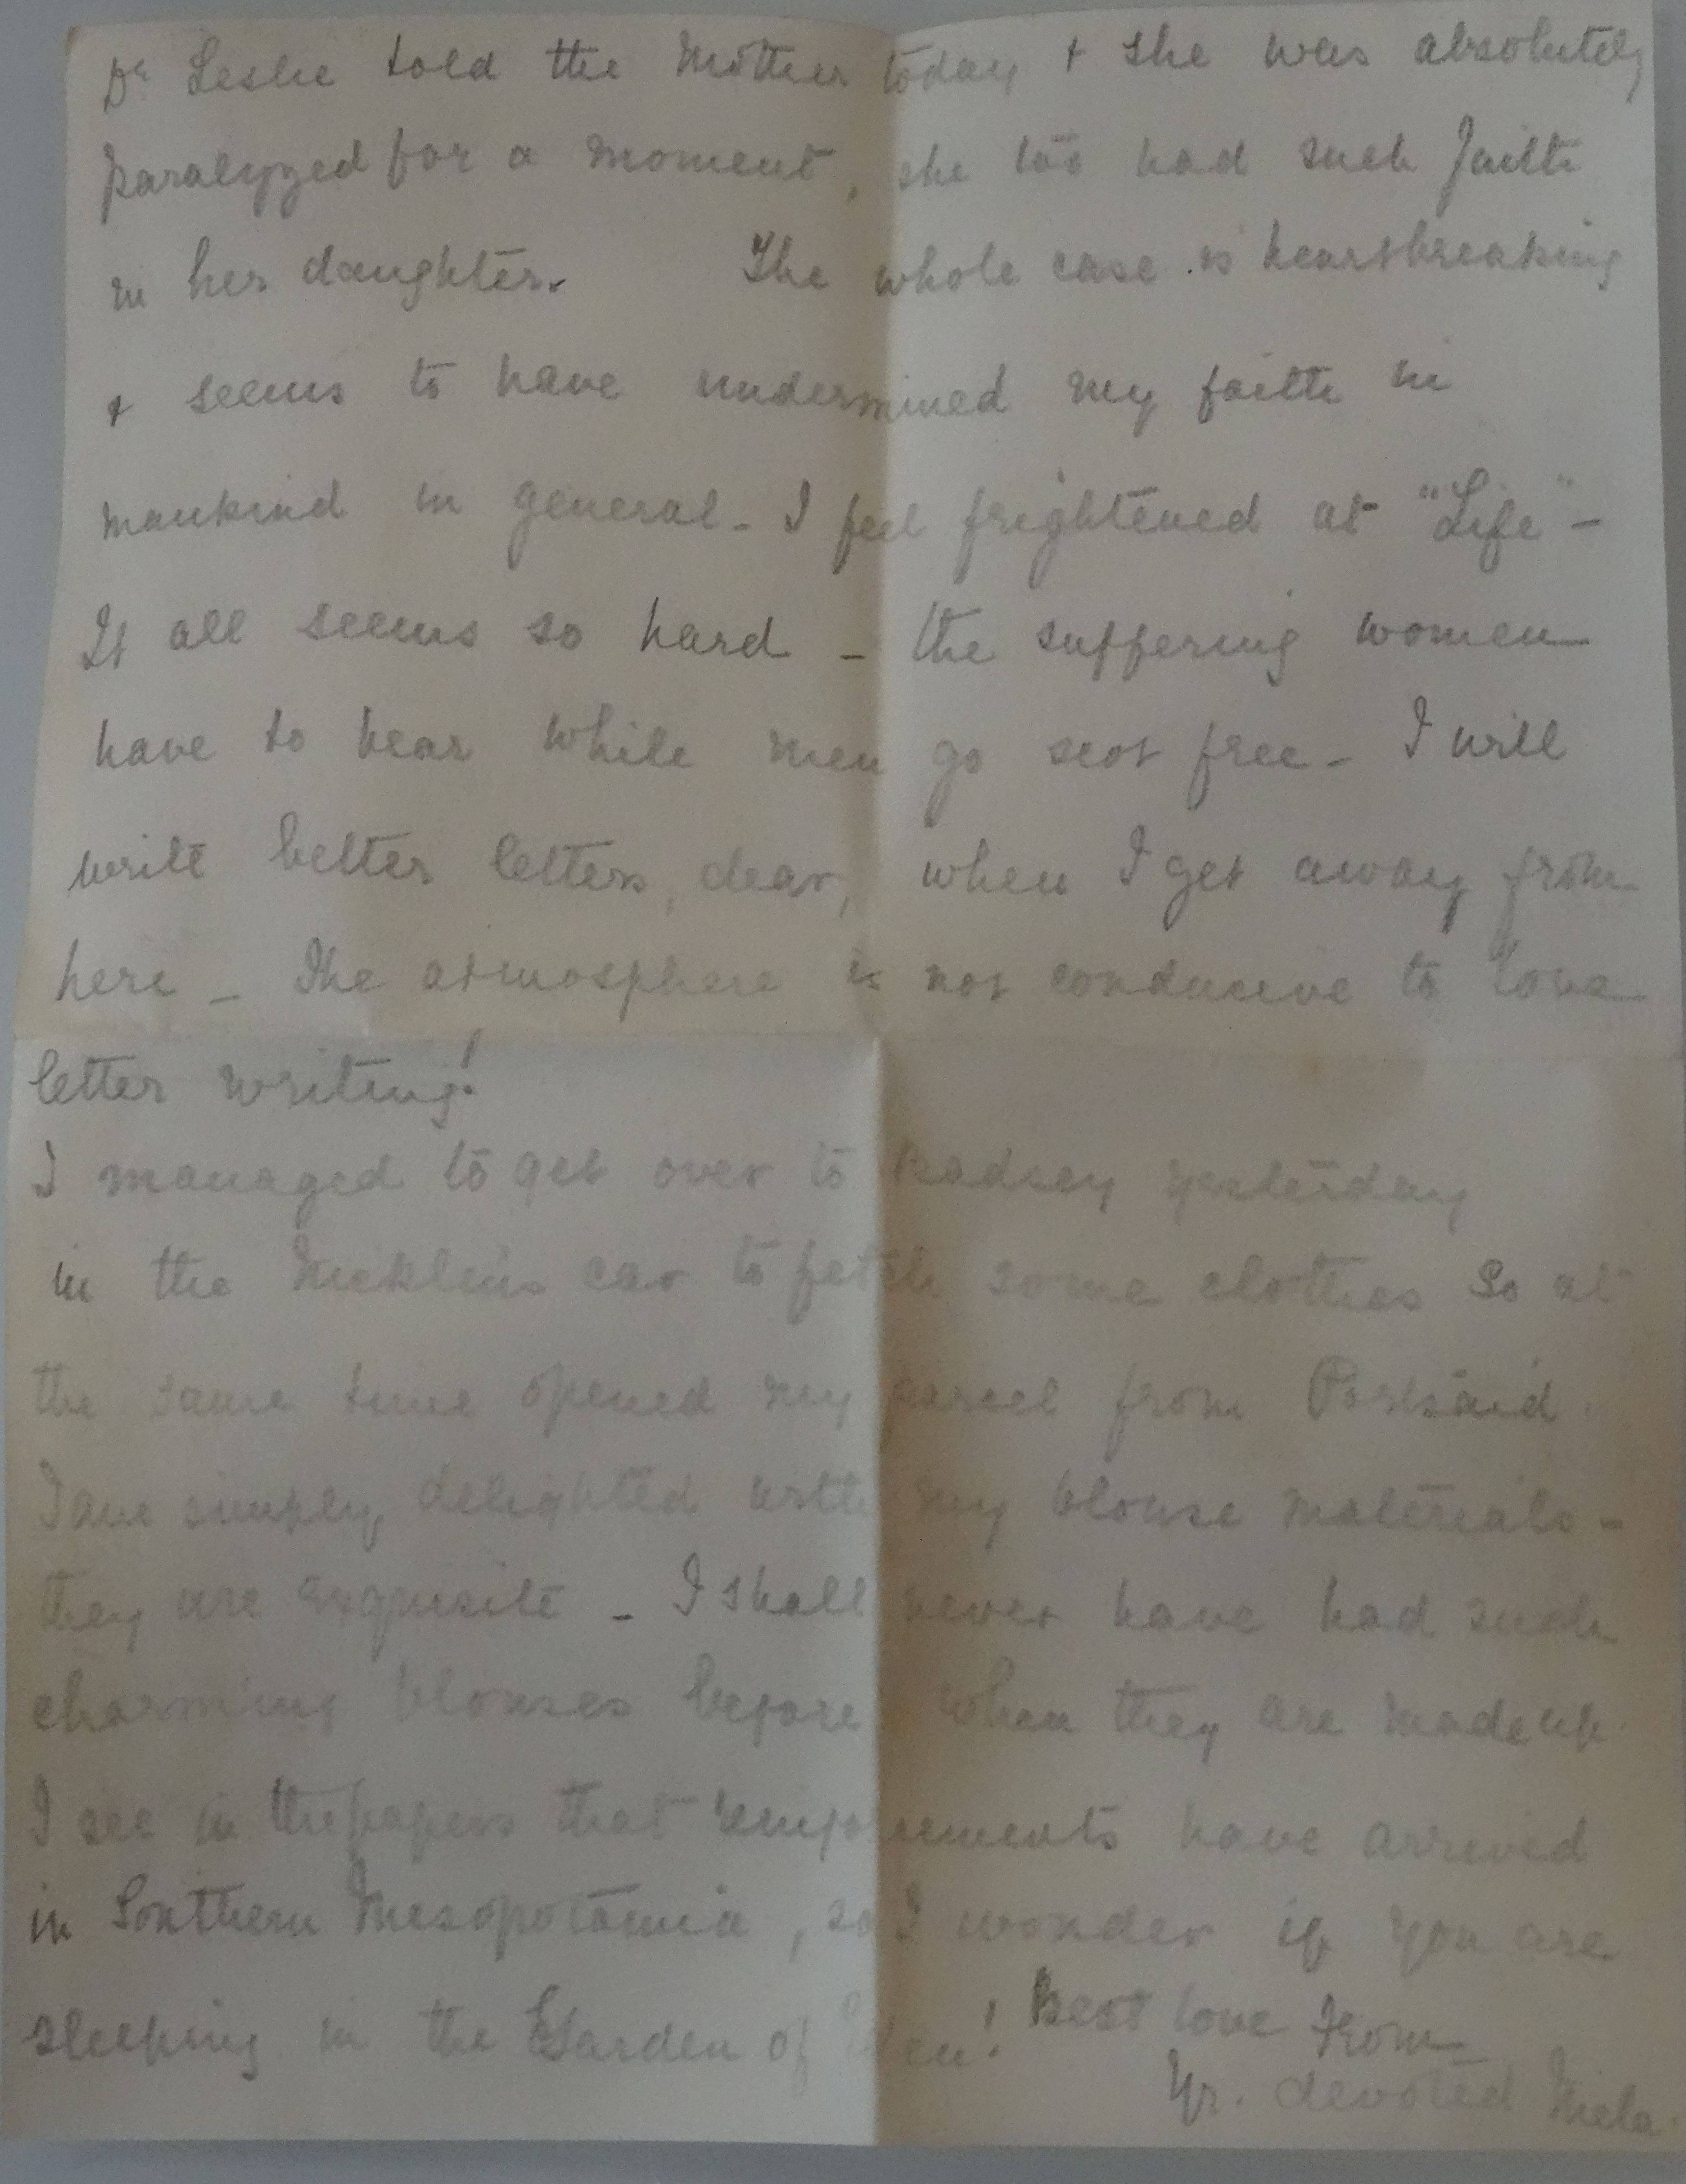 Dr Leslie told the Mother today + she was absolutely
paralyzed for a moment, she too had such faith
in her daughter. The whole case is heartbreaking
+ seems to have undermined my faith in
mankind in general - I feel frightened at "Life" -
It all seems so hard - the suffering women
have to bear while men go scot free - I will
write better letters, dear, when I get away from
here - The atmosphere is not conducive to love
letter writing!
I managed to get over to Badsey yesterday
in the car to fetch some clothes So at
the same time opened my parcel from Portsaid.
I am simply delighted with my blouse materials -
they are exquisite - I shall never have had such
charming blouses before when they are made up.
I see in the papers that have arrived
in Southern Mesopotamia, so I wonder if you are
sleeping in the Garden of Eden! Best love from
Yr. devoted